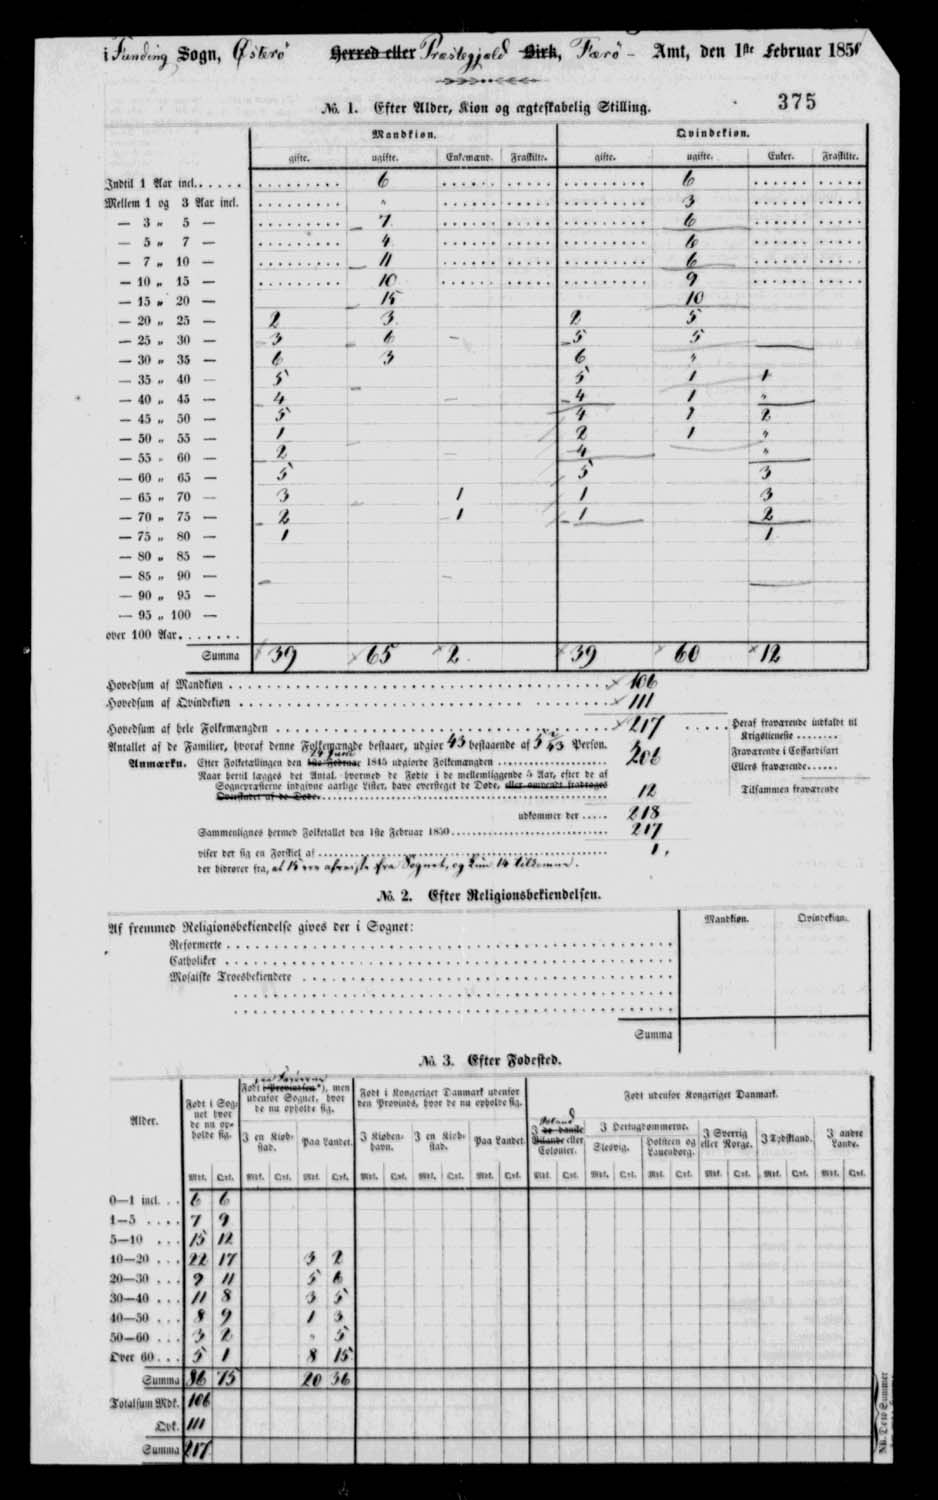 i Funding Sogn, Østerø Herred eller Præstegjeld Birk, Færø - Amt, den 1ste Februar 1850
375
No. 1. Efter Alder, Kiøn og ægteskabelig Stilling.
Mandkiøn. Qvindekiøn.
gifte. ugifte. Enkemænd. Fraskilte. gifte. ugifte. Enker. Fraskilte.
Indtil 1 Aar incl. . . . . . 6 6
Mellem 1 og 3 Aar incl. " 3
— 3 „ 5 — 7 6
— 5 „ 7 — 4 6
— 7 „ 10 — 11 6
— 10 „ 15 — 10 9
— 15 „ 20 — 15 10
— 20 „ 25 — 2 3 2 5
— 25 „ 30 — 3 6 5 5
— 30 „ 35 — 6 3 6 "
— 35 „ 40 — 5 5 1 1
— 40 „ 45 — 4 4 1 "
— 45 „ 50 — 5 4 1 2
— 50 „ 55 — 1 2 1 "
— 55 „ 60 — 2 4 "
— 60 „ 65 — 5 5 3
— 65 „ 70 — 3 1 1 3
— 70 „ 75 — 2 1 1 2
— 75 „ 80 — 1 1
— 80 „ 85 —
— 85 „ 90 —
— 90 „ 95 —
— 95 „ 100 —
over 100 Aar. . . . . . .
Summa 39 65 2 39 60 12
Hovedsum af Mandkiøn 106
Hovedsum af Qvindekiøn 111
Hovedsum af hele Folkemængden 217 Heraf fraværende indkaldt til
Krigstieneste
Antallet af de Familier, hvoraf denne Folkemængde bestaaer, udgiør 43 bestaaende af 5 2/43 Person. Fraværende i Coffardifart
Anmærkn. Efter Folketællingen den 1ste Februar 1845 udgiorde Folkemængden 206 Ellers fraværende
Naar hertil lægges det Antal hvormed de Fødte i de mellemliggende 5 Aar, efter de af
Sognepræsterne indgivne aarlige Lister, have oversteget de Døde, eller omvendt fradrages
Overskudet af de Døde. 12 Tilsammen fraværende
udkommer der 218
Sammenlignes hermed Folketallet den 1ste Februar 1850 217
viser der sig en Forskiel af 1.
der hidrører fra, at 15 ere afreiste fra Sognet, og kun 14 tilkomne.
No. 2. Efter Religionsbekiendelsen.
Mandkiøn. Qvindekiøn.
Af fremmed Religionsbekiendelse gives der i Sognet:
Reformerte
Catholiker
Mosaiske Troesbekiendere
Summa
No. 3. Efter Fødested.
Alder. Født i Sognet hvor de nu opholde sig. Født i Provindsen*), men udenfor Sognet, hvor de nu opholde sig. Født i Kongeriget Danmark udenfor den Provinds, hvor de nu opholde sig. Født udenfor Kongeriget Danmark.
I en Kiøbstad. Paa Landet. I Kiøbenhavn. I en Kiøbstad. Paa Landet. Island I de danske Bilande eller Colonier. I Hertugdømmerne. Slesvig. Holsteen og Lauenborg. I Sverrig eller Norge. I Tydskland. I andre Lande.
Mk. Qvk. Mk. Qvk. Mk. Qvk. Mk. Qvk. Mk. Qvk. Mk. Qvk. Mk. Qvk. Mk. Qvk. Mk. Qvk. Mk. Qvk. Mk. Qvk. Mk. Qvk.
0—1 incl. . . 6 6
1—5 . . . . 7 9
5—10 . . . 15 12
10—20 . . . 22 17 3 2
20—30 . . . 9 11 5 6
30—40 . . . 11 8 3 5
40—50 . . . 8 9 1 3
50—60 . . . 3 2 " 5
Over 60 . . . 5 1 8 15
Summa 86 75 20 36
Totalsum Mdk. 106
Qvk. 111
Summa 217
NB. Disse Summer